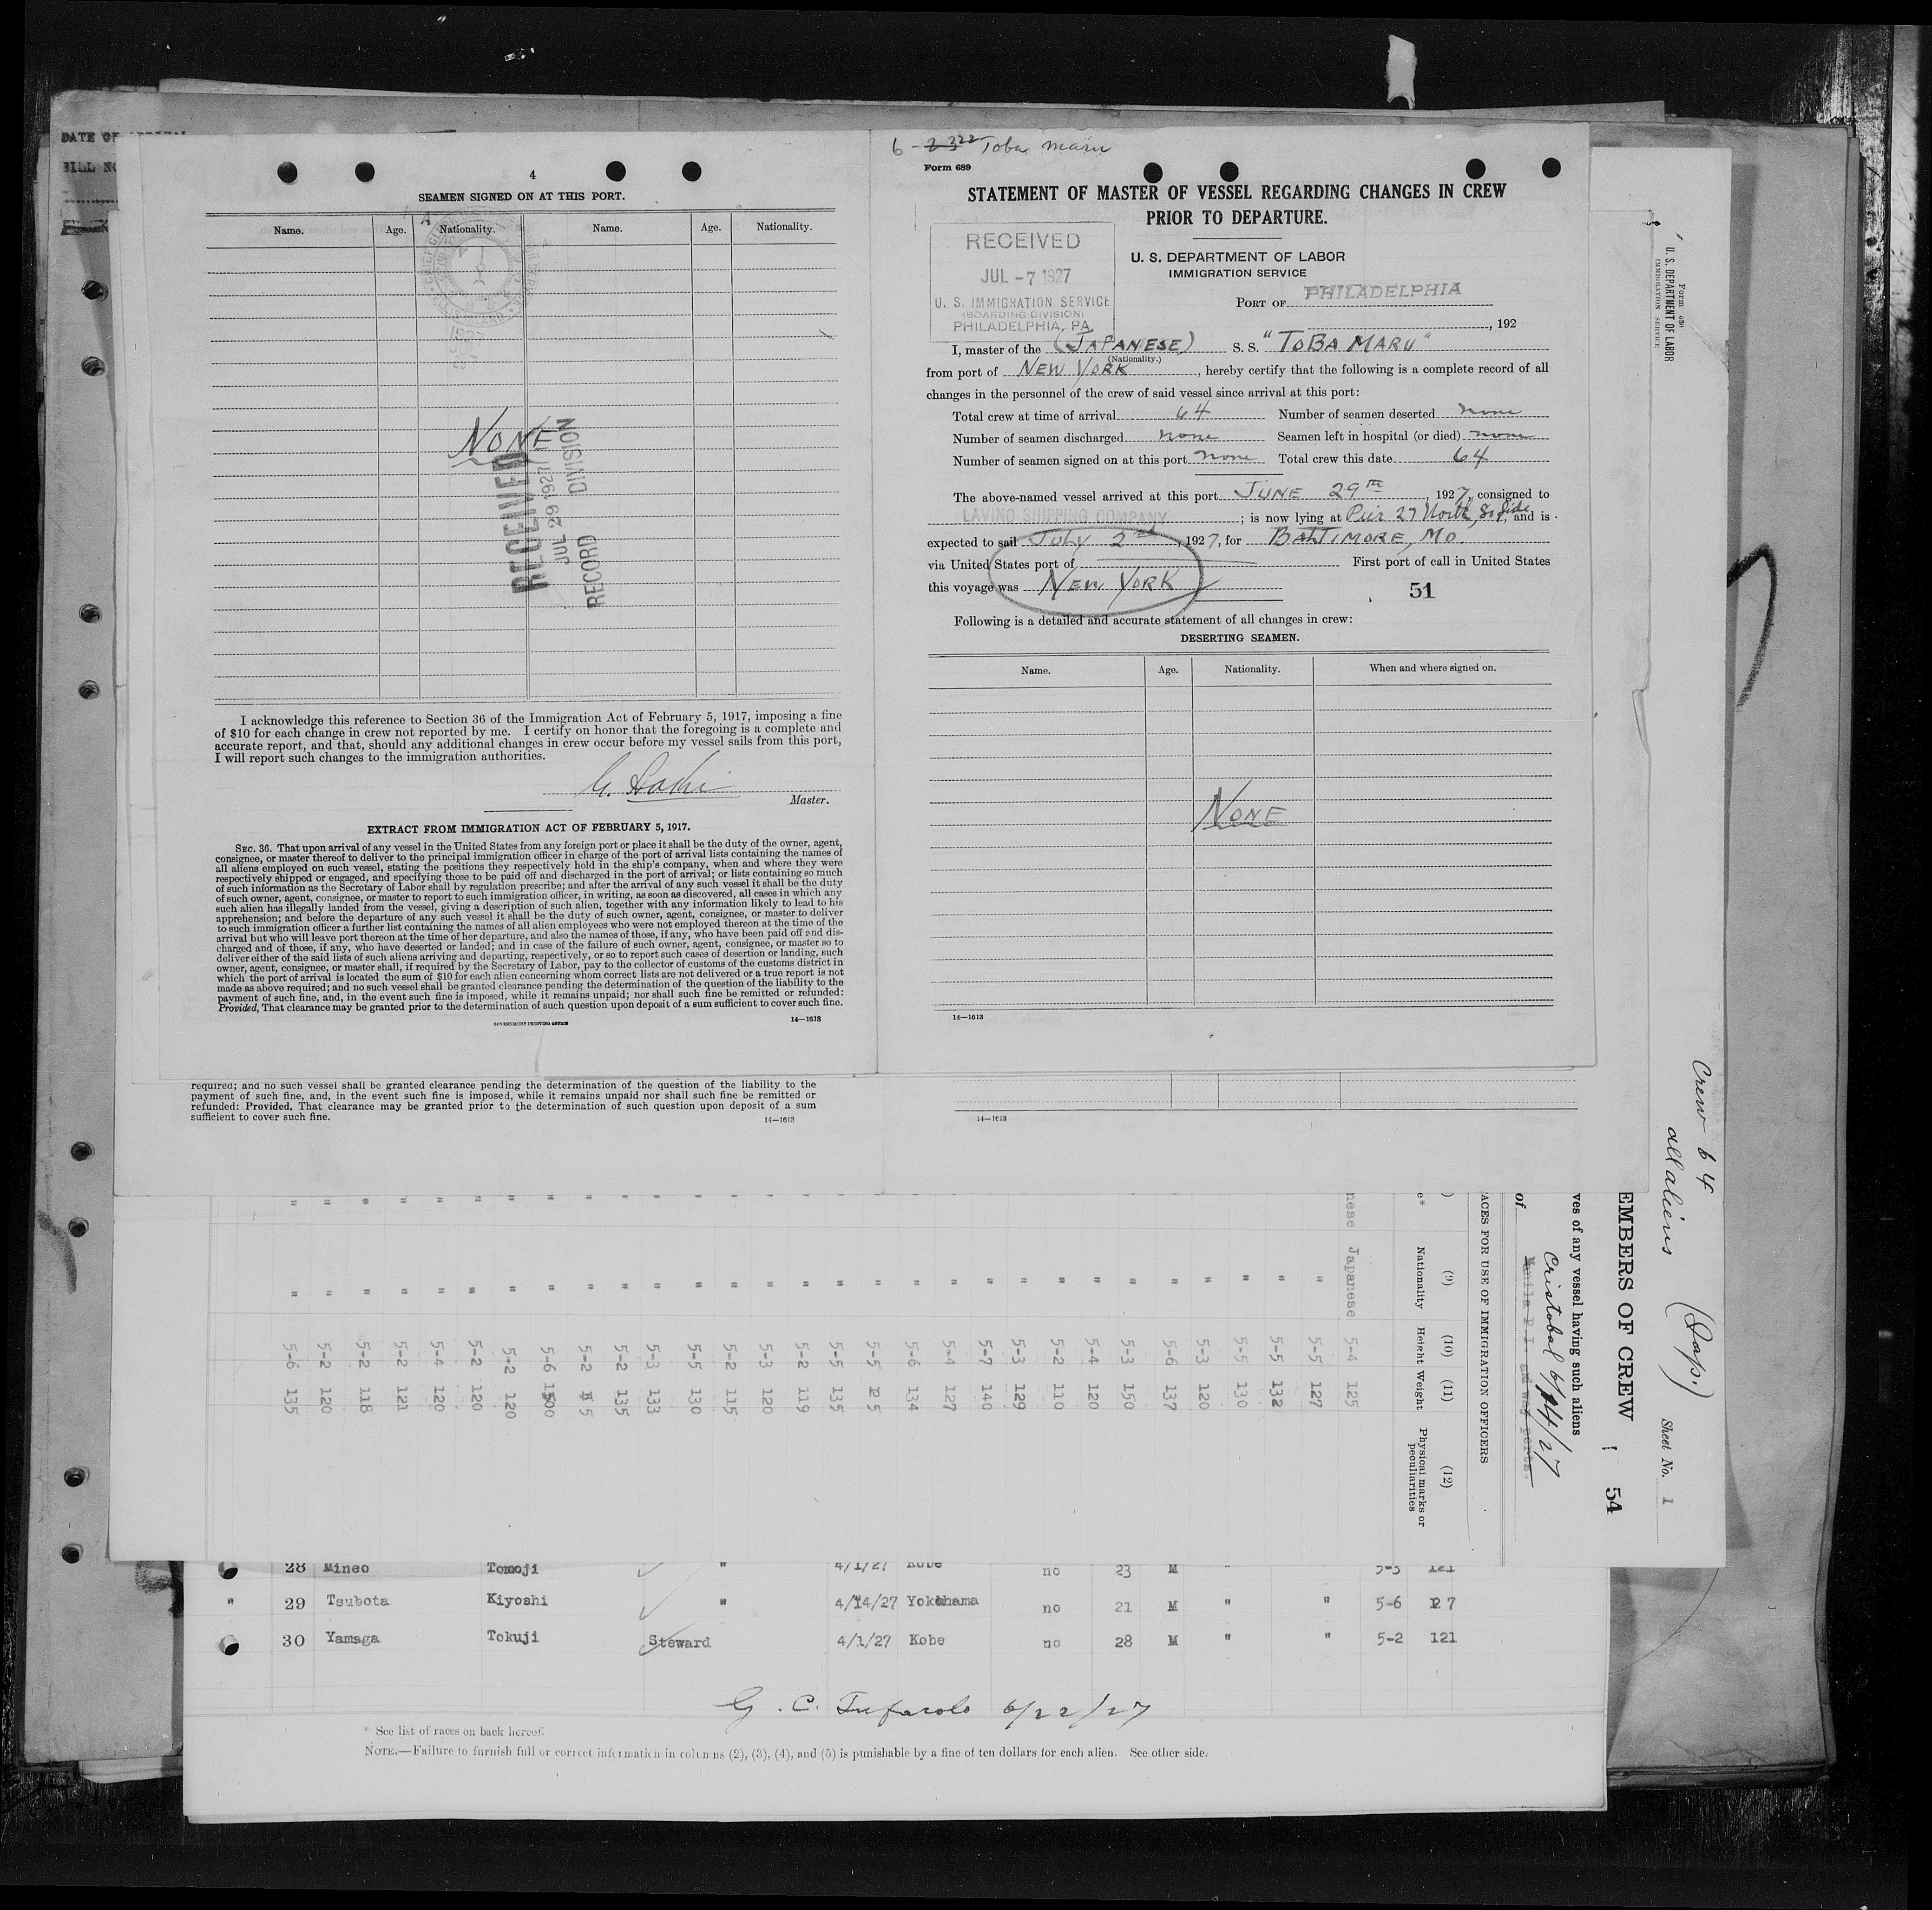 DATE OF
BILL NO
4
SEAMEN SIGNED ON AT THIS PORT.
Name. Age. Nationality. Name. Age. Nationality.
NONE
RECEIVED
JUL 29 1927
RECORD DIVISION
I acknowledge this reference to Section 36 of the Immigration Act of February 5, 1917, imposing a fine
of $10 for each change in crew not reported by me. I certify on honor that the foregoing is a complete and
accurate report, and that, should any additional changes in crew occur before my vessel sails from this port,
I will report such changes to the immigration authorities.
Master.
EXTRACT FROM IMMIGRATION ACT OF FEBRUARY 5, 1917.
SEC. 36. That upon arrival of any vessel in the United States from any foreign port or place it shall be the duty of the owner, agent,
consignee, or master thereof to deliver to the principal immigration officer in charge of the port of arrival lists containing the names of
all aliens employed on such vessel, stating the positions they respectively hold in the ship's company, when and where they were
respectively shipped or engaged, and specifying those to be paid off and discharged in the port of arrival; or lists containing so much
of such information as the Secretary of Labor shall by regulation prescribe; and after the arrival of any such vessel it shall be the duty
of such owner, agent, consignee, or master to report to such immigration officer, in writing, as soon as discovered, all cases in which any
such alien has illegally landed from the vessel, giving a description of such alien, together with any information likely to lead to his
apprehension; and before the departure of any such vessel it shall be the duty of such owner, agent, consignee, or master to deliver
to such immigration officer a further list containing the names of all alien employees who were not employed thereon at the time of the
arrival but who will leave port thereon at the time of her departure, and also the names of those, if any, who have been paid off and dis-
charged and of those, if any, who have deserted or landed; and in case of the failure of such owner, agent, consignee, or master so to
deliver either of the said lists of such aliens arriving and departing, respectively, or so to report such cases of desertion or landing, such
owner, agent, consignee, or master shall, if required by the Secretary of Labor, pay to the collector of customs of the customs district in
which the port of arrival is located the sum of $10 for each alien concerning whom correct lists are not delivered or a true report is not
made as above required; and no such vessel shall be granted clearance pending the determination of the question of the liability to the
payment of such fine, and, in the event such fine is imposed, while it remains unpaid; nor shall such fine be remitted or refunded:
Provided, That clearance may be granted prior to the determination of such question upon deposit of a sum sufficient to cover such fine.
GOVERNMENT PRINTING OFFICE 14—1613
6 - 2322 Toba Maru
Form 689
STATEMENT OF MASTER OF VESSEL REGARDING CHANGES IN CREW
PRIOR TO DEPARTURE.
RECEIVED
JUL -7 1927
U. S. IMMIGRATION SERVICE
(BOARDING DIVISION)
PHILADELPHIA, PA.
U. S. DEPARTMENT OF LABOR
IMMIGRATION SERVICE
PORT OF PHILADELPHIA
, 192
I, master of the (JAPANESE) S. S. "TOBA MARU"
(Nationality.)
from port of NEW YORK, hereby certify that the following is a complete record of all
changes in the personnel of the crew of said vessel since arrival at this port:
Total crew at time of arrival 64 Number of seamen deserted none
Number of seamen discharged none Seamen left in hospital (or died) none
Number of seamen signed on at this port none Total crew this date 64
The above-named vessel arrived at this port JUNE 29TH, 1927, consigned to
LAVINO SHIPPING COMPANY; is now lying at Pier 27 North, So Side, and is
expected to sail JULY 2nd, 1927, for BALTIMORE, MD.
via United States port of First port of call in United States
this voyage was NEW YORK 51
Following is a detailed and accurate statement of all changes in crew:
DESERTING SEAMEN.
Name. Age. Nationality. When and where signed on.
NONE
14—1613
required; and no such vessel shall be granted clearance pending the determination of the question of the liability to the
payment of such fine, and, in the event such fine is imposed, while it remains unpaid nor shall such fine be remitted or
refunded: Provided, That clearance may be granted prior to the determination of such question upon deposit of a sum
sufficient to cover such fine.
14—1613 14—1613
Form 689
U. S. DEPARTMENT OF LABOR
IMMIGRATION SERVICE
Crew 64
all aliens (Jap.)
Sheet No. 1
EMBERS OF CREW 54
ves of any vessel having such aliens
Cristobal 6/14/27
of Manila P.I. and way ports.
ACES FOR USE OF IMMIGRATION OFFICERS
(9) (10) (11) (12)
Nationality Height Weight Physical marks or peculiarities
nese Japanese 5-4 125
" 5-5 127
" 5-5 132
" 5-5 130
" 5-3 120
" 5-6 137
" 5-3 150
" 5-4 120
" 5-2 110
" 5-3 129
" 5-7 140
" 5-4 127
" 5-6 134
" 5-5
" 5-5 135
" 5-2 119
" 5-3 120
" 5-2 115
" 5-5 130
" 5-3 133
" 5-2 135
" 5-2
" 5-6
" 5-2 120
" 5-2 120
" 5-4 120
" 5-2 121
" 5-2 118
" 5-2 120
" 5-6 135
28 Mineo Tomoji " 4/1/27 Kobe no 23 M 5-3 121
" 29 Tsubota Kiyoshi " 4/14/27 Yokohama no 21 M " " 5-6 127
30 Yamaga Tokuji Steward 4/1/27 Kobe no 28 M " " 5-2 121
G. C. Tufarolo 6/22/27
* See list of races on back hereof.
NOTE.—Failure to furnish full or correct information in columns (2), (3), (4), and (5) is punishable by a fine of ten dollars for each alien. See other side.